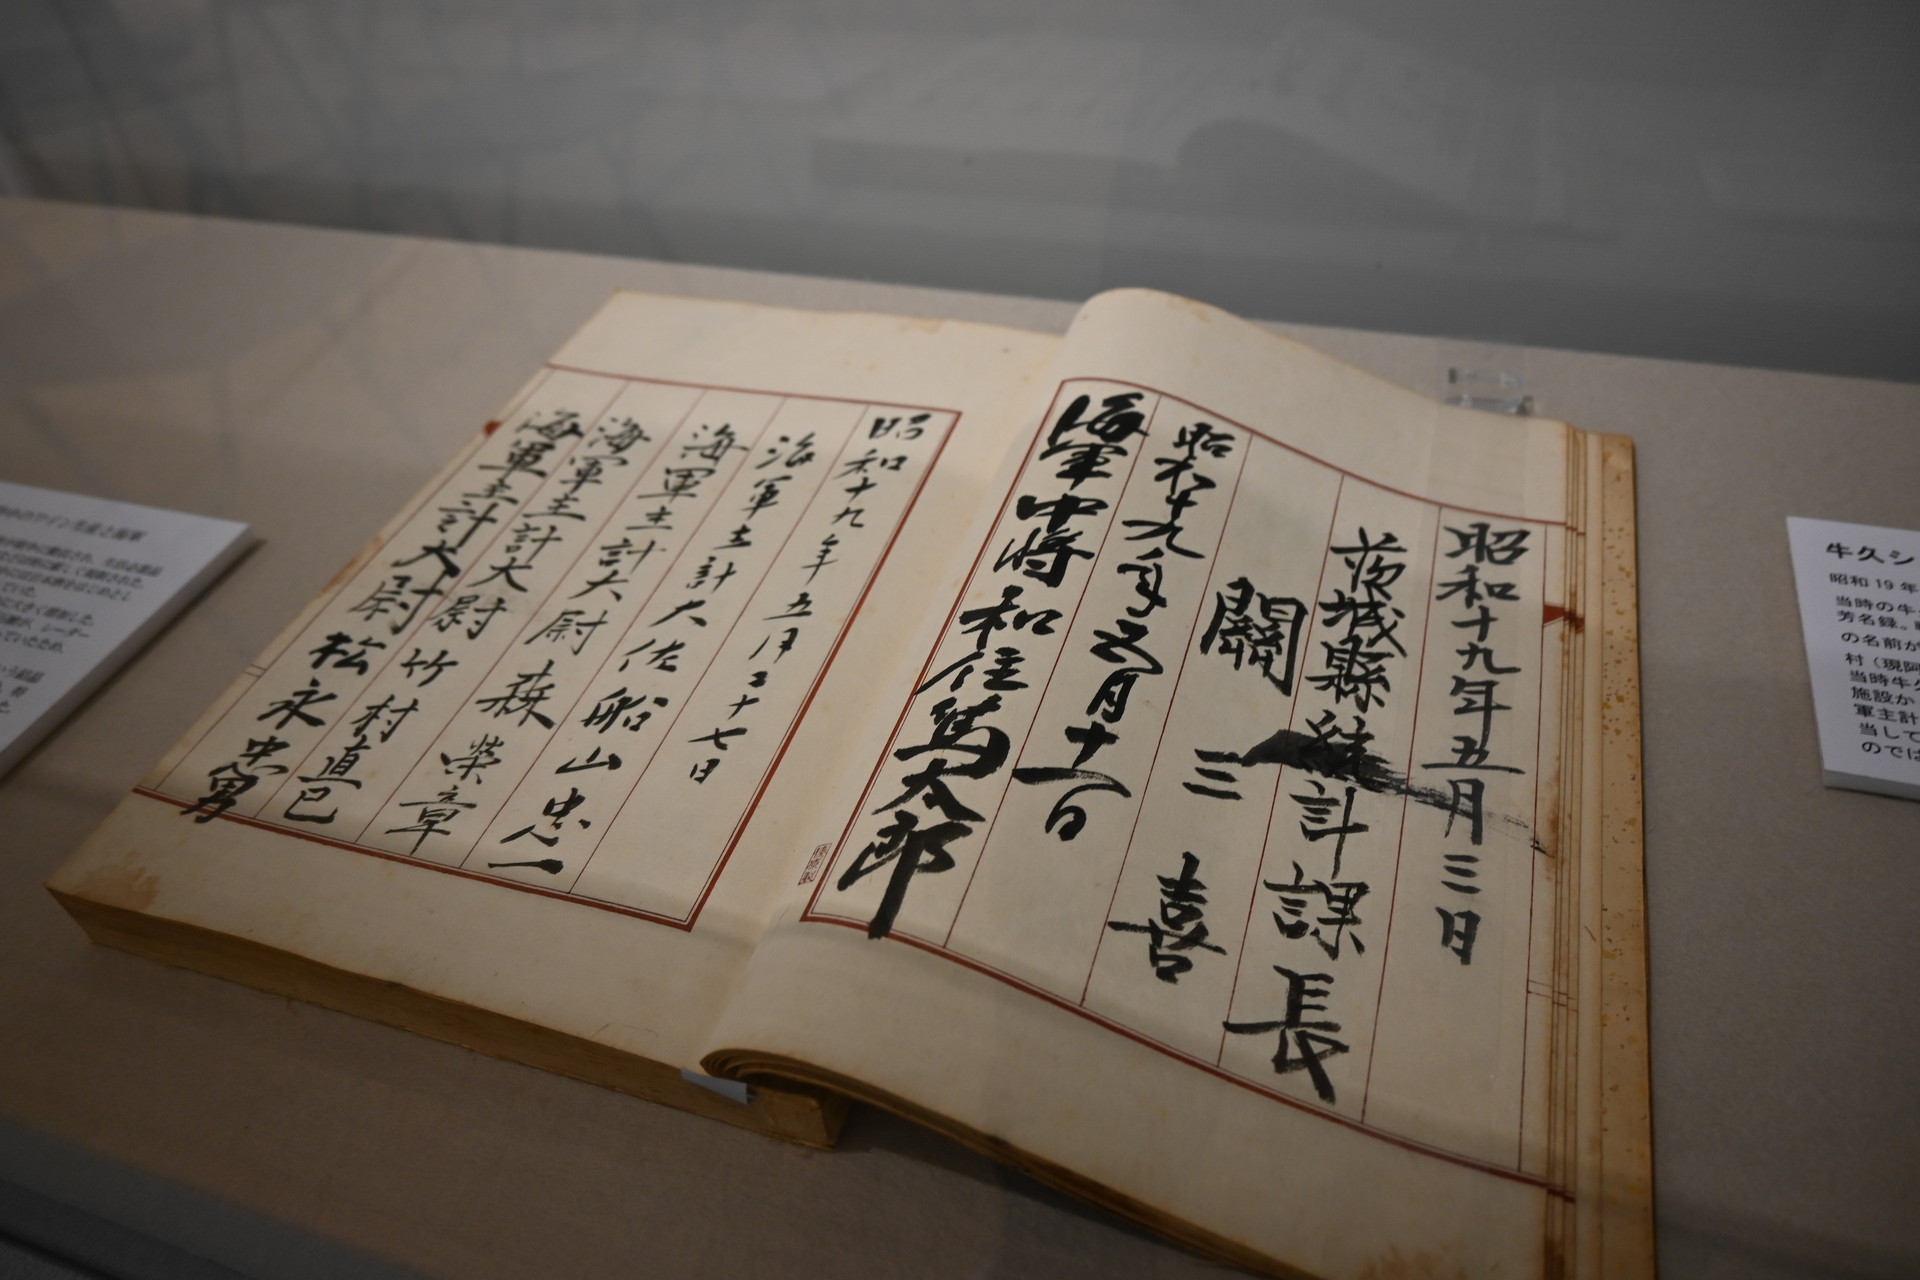 昭和十九年五月三日
茨城縣統計課長
關三喜
昭和十九年五月十一日
海軍中将和住篤太郎
昭和十九年五月二十七日
海軍主計大佐船山忠一
海軍主計大尉森榮章
海軍主計大尉竹村直巳
海軍主計大尉松永忠男
榛原製
牛久シ
昭和 19 年
当時の牛
芳名録。
の名前が
村（現阿
当時牛久
施設か
軍主計
当して
のでは